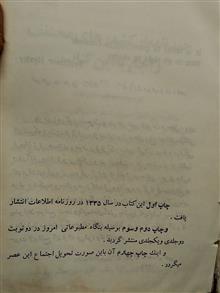 چاپ اول این کتاب در سال ۱۳۳۵ در روزنامه اطلاعات انتشار
یافت .
و چاپ دوم و سوم بوسیله بنگاه مطبوعاتی امروز در دو نوبت
دو جلدی و یکجلدی منتشر گردید .
و اینك چاپ چهارم آن باین صورت تحویل اجتماع این عصر
میگردد .